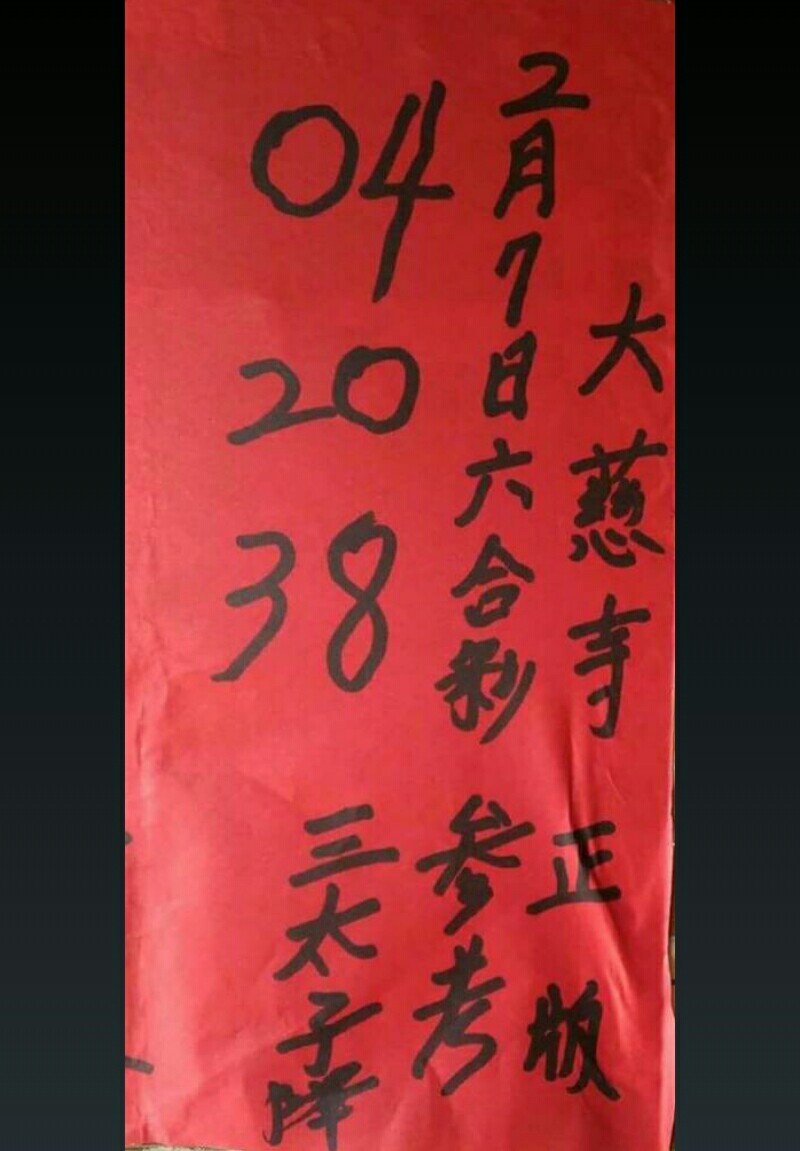 大慈寺 正版
2月7日六合彩 参考
04
20
38
三太子降